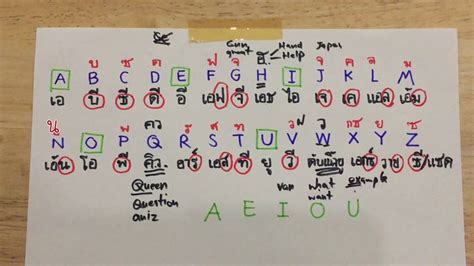 Gun Hand Japan
great ฮ. Help
บ ซ ด ฟ จ จ ค ล ม
A B C D E F G H I J K L M
เอ บี ซี ดี อี เอฟ จี เอช ไอ เจ เค แอล เอ็ม
น คว ว ฟ ว กซ ย ซ
N O P Q R S T U V W X Y Z
เอ็น โอ พี คิว อาร์ เอส ที ยู วี ดับเบิ้ลยู เอกซ์ วาย ซี/แซด
Queen van what example
Question want
quiz A E I O U